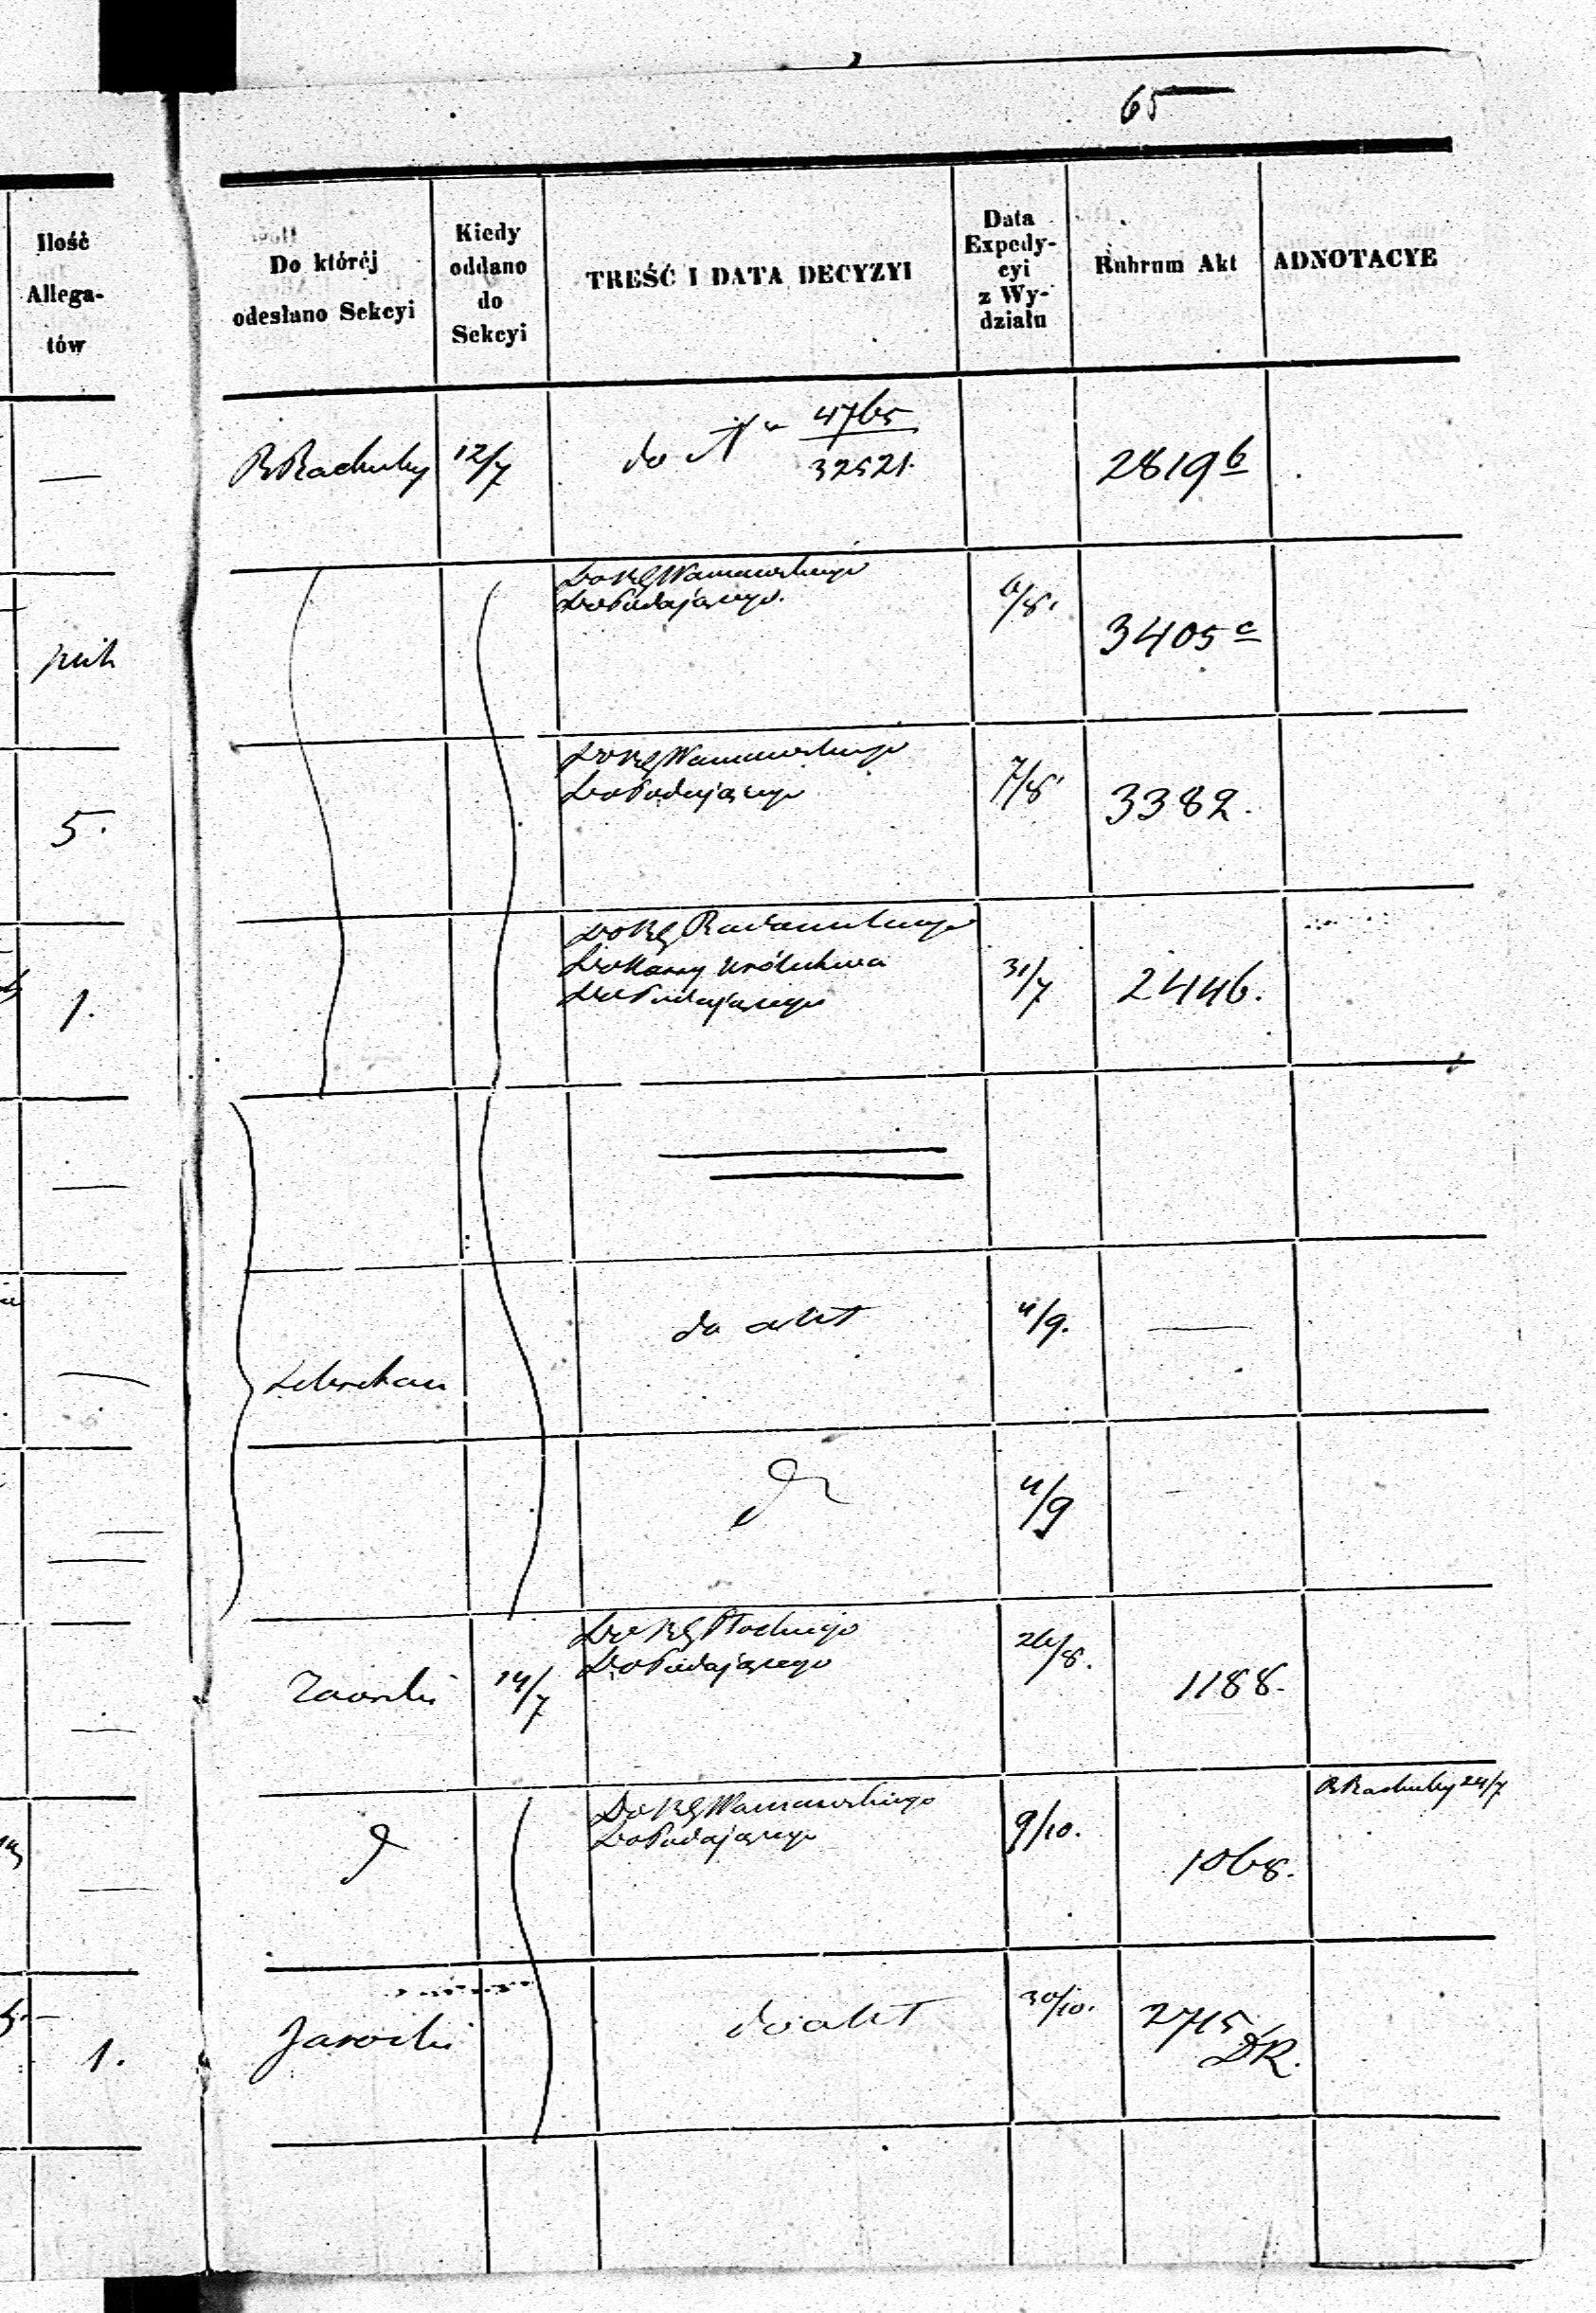 65
Ilość
Allega-
tów
Do któréj
odesłano Sekcyi
Kiedy
oddano
do
Sekcyi
TREŚĆ I DATA DECYZYI
Data
Expedy-
cyi
z Wy-
działu
Rubrum Akt
ADNOTACYE
—
B Rachuby
12/7
do Nr 4765
32521.
2819 b
Do RG Warszawskiego
Do Podającego.
6/8.
3405 c
Do RG Warszawskiego
Do Podającego
7/8
3382.
5.
Do RG Radomskiego
Do Kassy
Do Podającego
31/7
2446.
1.
do akt
11/9.
—
11/9
14/7
Do RG Płockiego
Do Podającego
26/8.
1188.
Do RG Warszawskiego
Do Podającego
9/10.
1068.
B Rachuby 24/7
Jarocki
do akt
30/10.
2715
DR.
1.